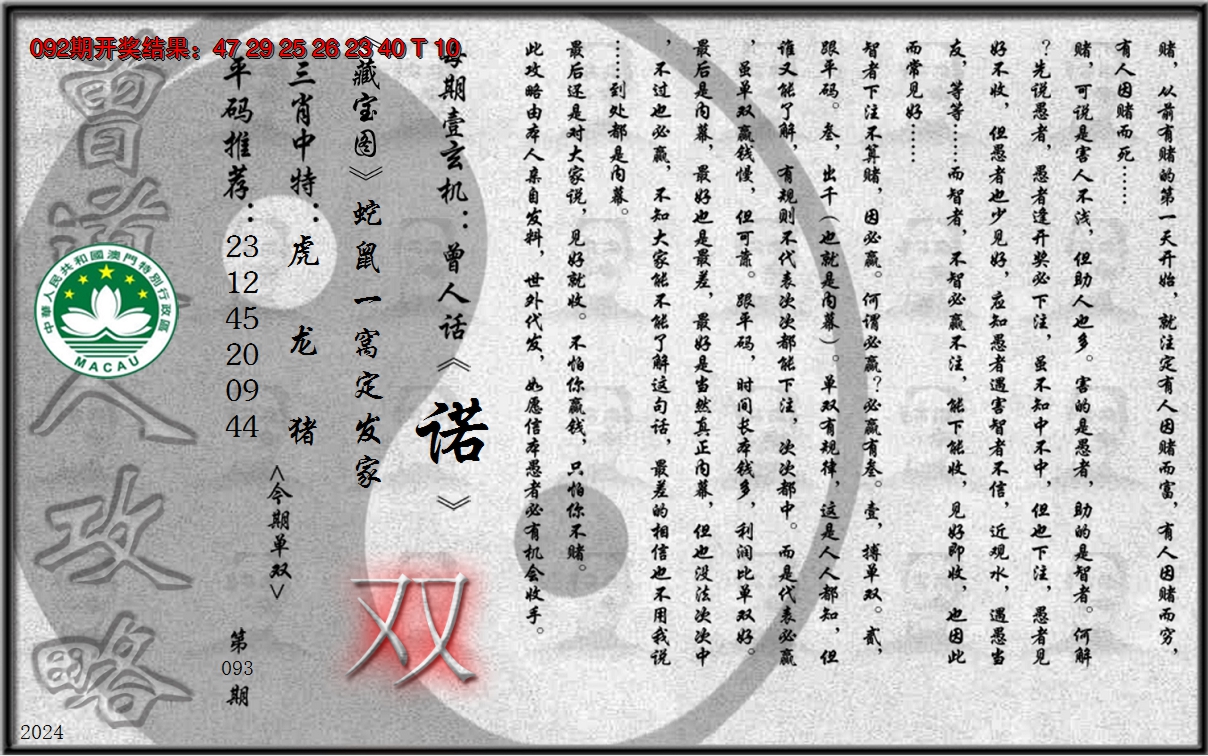 092期开奖结果：47 29 25 26 23 40 T 10
赌，从前有赌的第一天开始，就注定有人因赌而富，有人因赌而穷，
有人因赌而死……
赌，可说是害人不浅，但助人也多。害的是愚者，助的是智者。何解
？先说愚者，愚者逢开奖必下注，虽不知中不中，但也下注，愚者见
好不收，但愚者也少见好，应知愚者遇害智者不信，近观水，遇愚当
友，等等……而智者，不智必赢不注，能下能收，见好即收，也因此
而常见好……
智者下注不算赌，因必赢。何谓必赢？必赢有叁。壹，搏单双。贰，
跟平码。叁，出千（也就是内幕）。单双有规律，这是人人都知，但
谁又能了解，有规则不代表次次都能下注，次次都中。而是代表必赢
，虽单双赢钱慢，但可靠。跟平码，时间长本钱多，利润比单双好。
最后是内幕，最好也是最差，最好是当然真正内幕，但也没法次次中
，不过也必赢，不知大家能不能了解这句话，最差的相信也不用我说
……到处都是内幕。
最后还是对大家说，见好就收。不怕你赢钱，只怕你不赌。
此攻略由本人亲自发料，世外代发，如愿信本愚者必有机会收手。
每期壹玄机：曾人话《诺》
《藏宝图》蛇鼠一窝定发家
双
三肖中特：虎 龙 猪
<今期单双>
平码推荐：
23
12
45
20
09
44
第
093
期
曾道人攻略
中華人民共和國澳門特別行政區
MACAU
2024